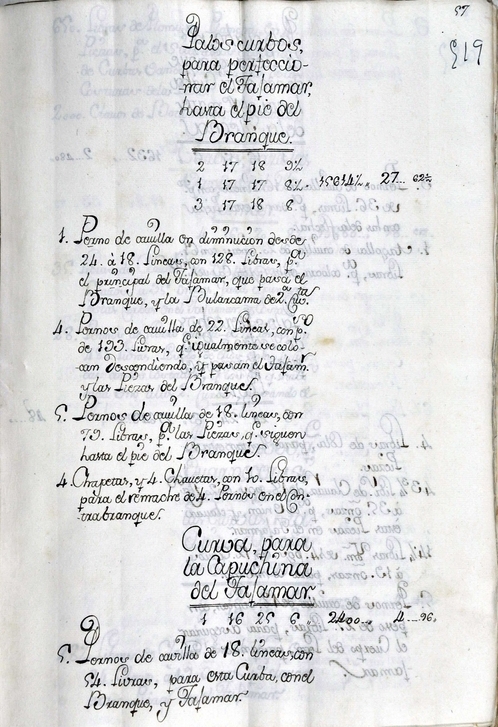 57
519
Palos curbos,
para perfeccio-
nar el Tajamar,
hasta el pie del
Branque.
2 17 18 9½
1 17 17 8½. 15614½, 27... 62½
3 17 18 8
1. Perno de cavilla en diminucion desde
24. à 18. Lineas, con 128. Libras, pª
el principal del Tajamar, que pasa el
Branque, y la Bularcama de 2.
4. Pernos de cavilla de 22. Lineas, con pº
de 193. Livras, qe. igualmente se colo-
can descendiendo, y pasan el Tajamr
y las Piezas del Branque.
5. Pernos de cavilla de 18. lineas, con
79. Libras, pª las Piezas, qe. siguen
hasta el pie del Branque.
4. Chapetas, y 4. Chavetas, con 10. Libras,
para el remache de 4. Pernos en el Con-
trabranque.
Curva, para
la Capuchina
del Tajamar
1 16 25 6 2400... 4... 96,
5. Pernos de cavilla de 18. lineas, con
54. Livras, para esta Curba, con el
Branque, y Tajamar.